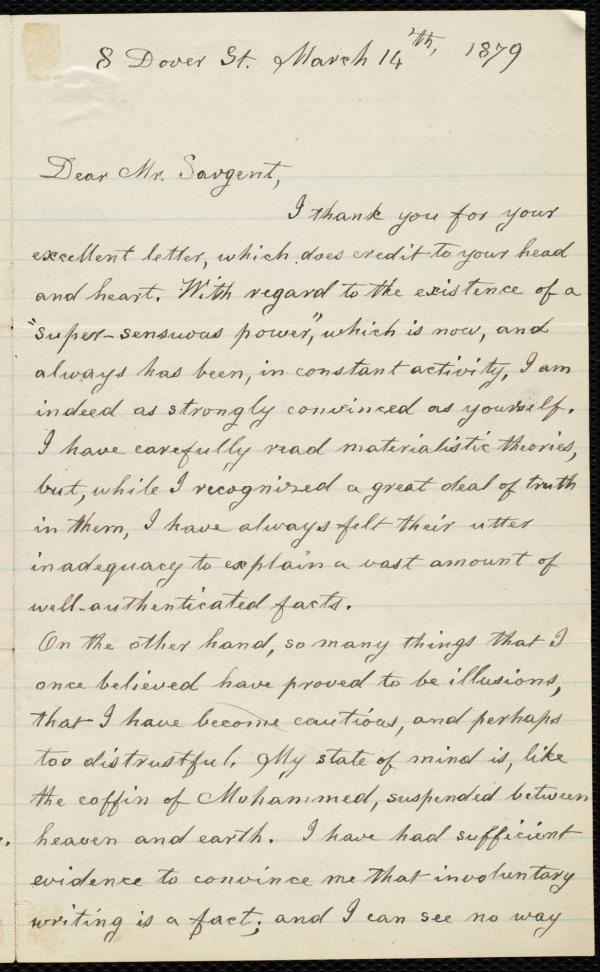 8 Dover St. March 14th, 1879
Dear Mr. Sargent,
I thank you for your
excellent letter, which does credit to your head
and heart. With regard to the existence of a
"super-sensuous power," which is now, and
always has been, in constant activity, I am
indeed as strongly convinced as yourself.
I have carefully read materialistic theories,
but, while I recognized a great deal of truth
in them, I have always felt their utter
inadequacy to explain a vast amount of
well-authenticated facts.
On the other hand, so many things that I
once believed have proved to be illusions,
that I have become cautious, and perhaps
too distrustful. My state of mind is, like
the coffin of Mohammed, suspended between
heaven and earth. I have had sufficient
evidence to convince me that involuntary
writing is a fact; and I can see no way